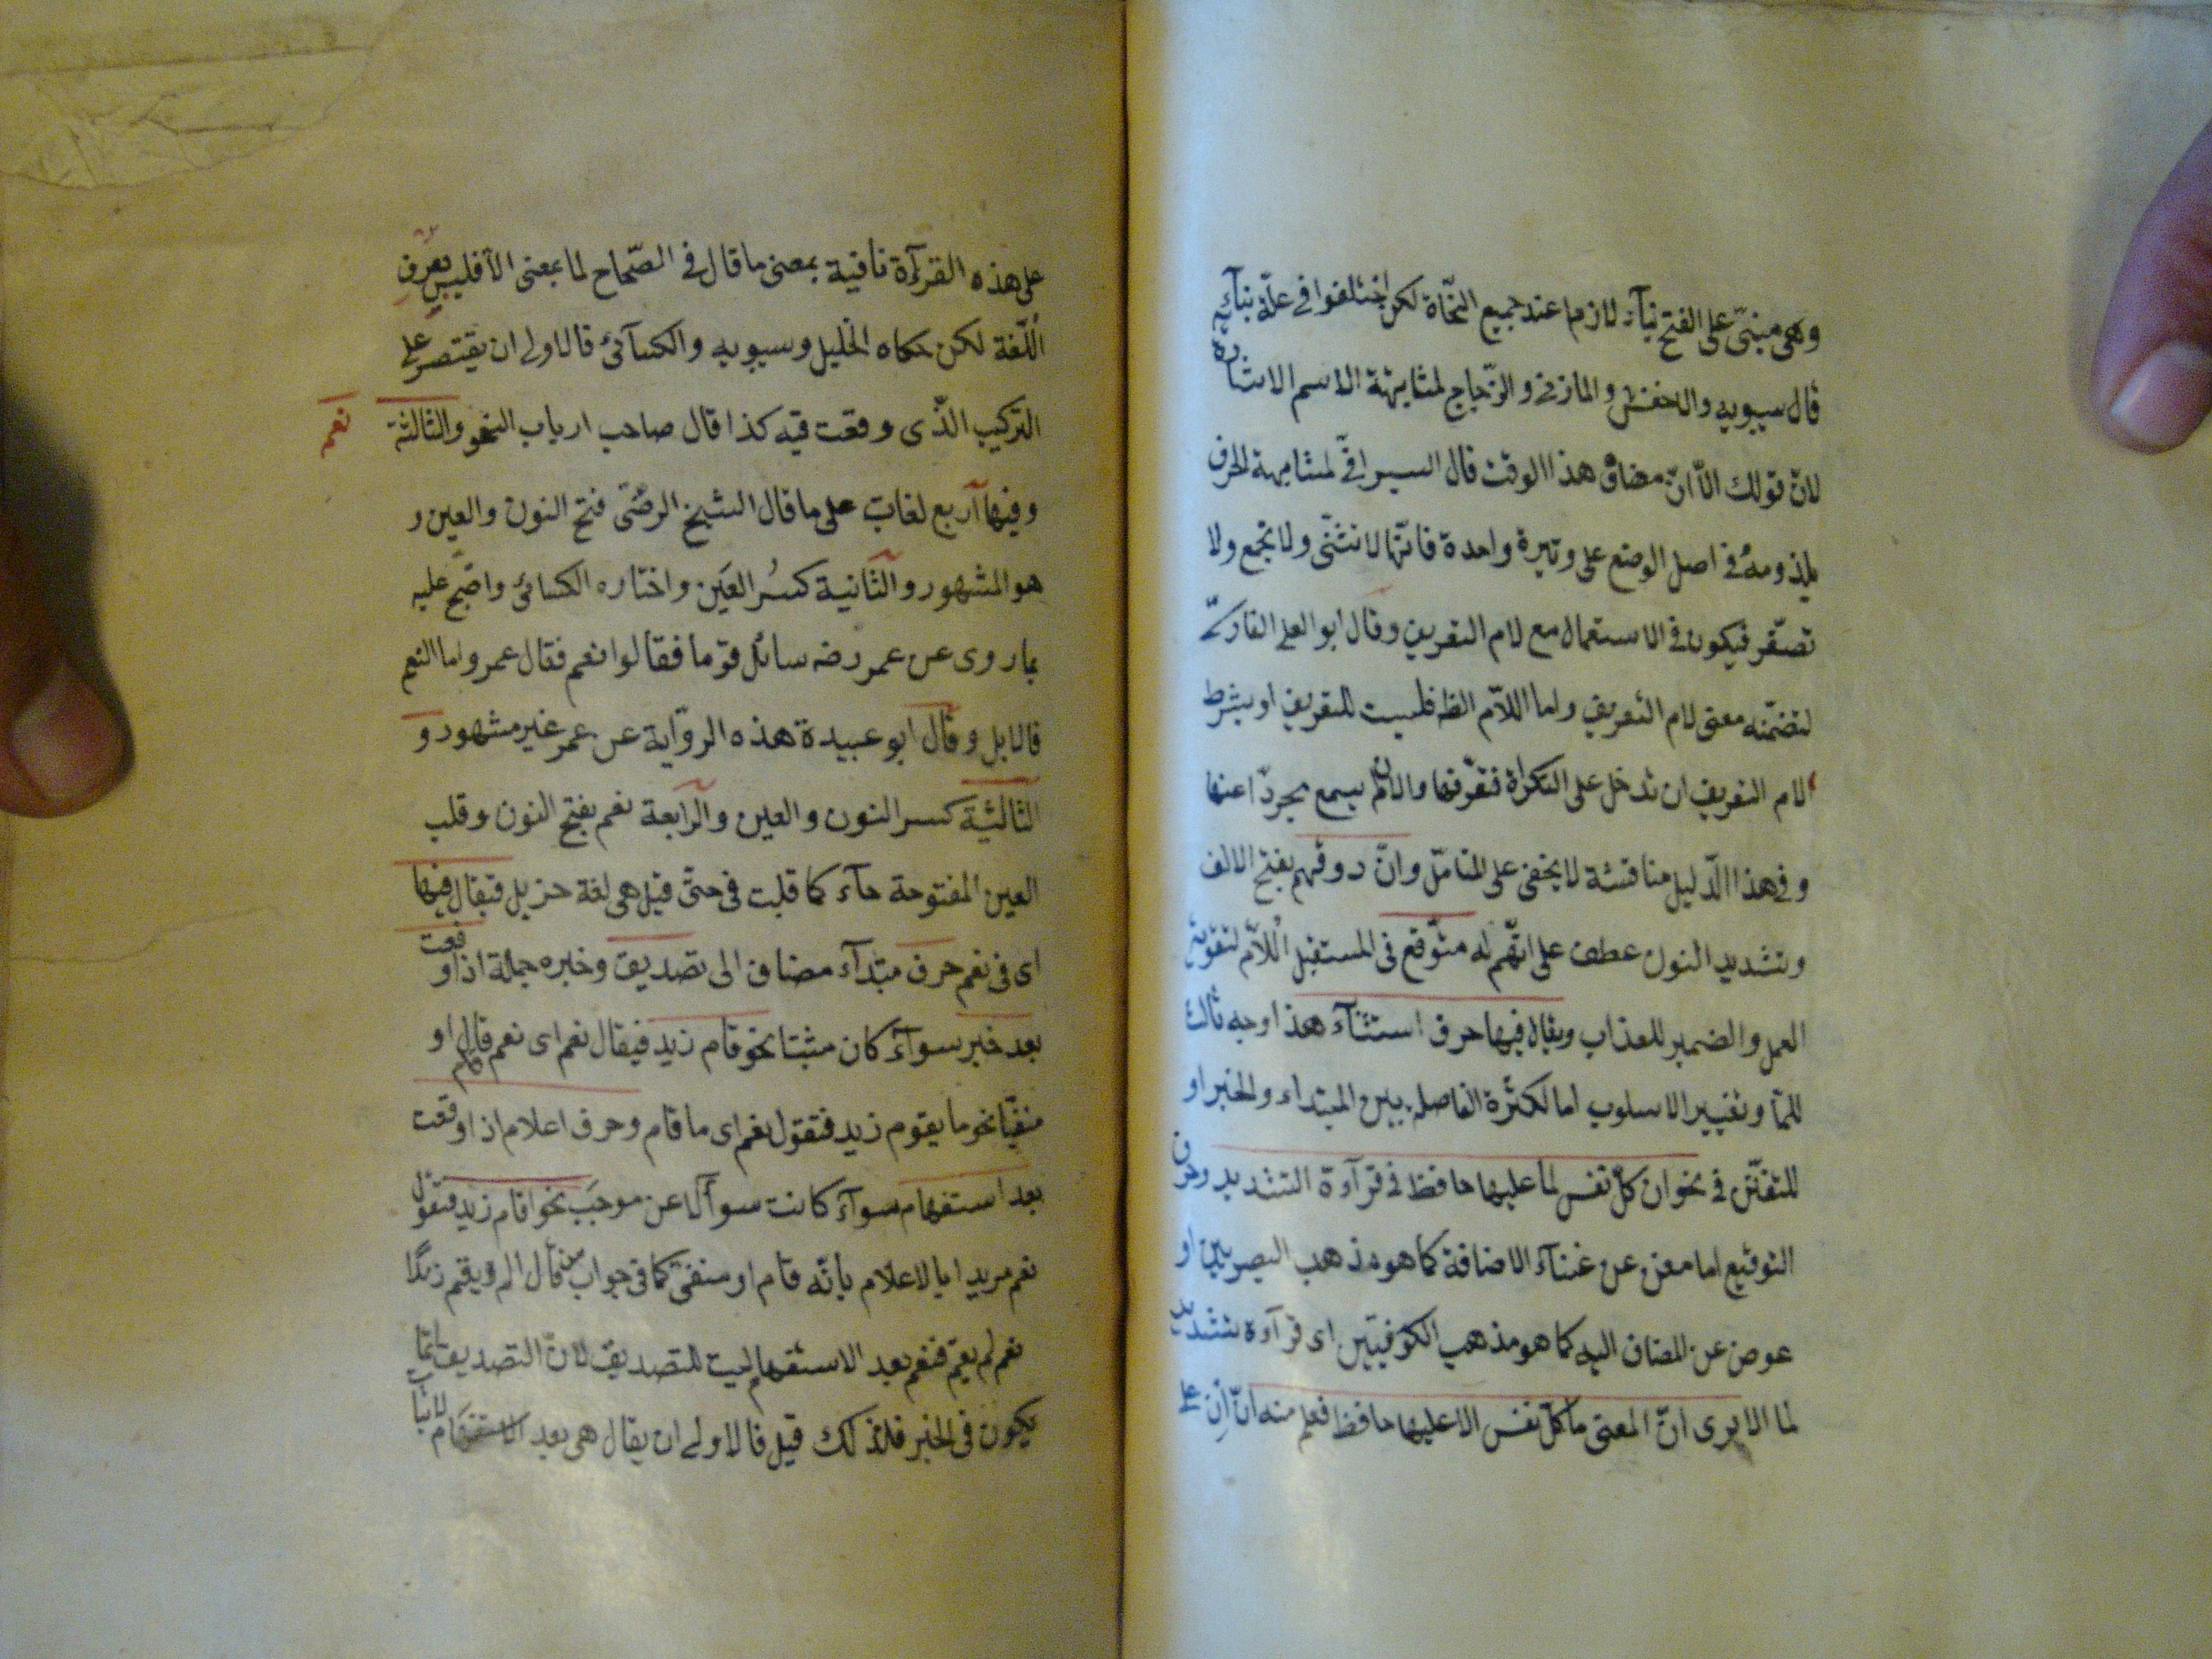 وهى مبنىّ على الفتح بنآء لازما عند جميع النحّاة لكن اختلفوا فى علّة بنآئهم
قال سيبويه والاخفش والمازنى والزّجاج لمشابهة الاسم الاشارة
لانّ قولك الاّ انّ هذا الوقت قال السيرافىّ لمشابهة الحرف
فى اصل الوضع على وتيرة واحدة فانّها لا تثنّى ولا تجمع ولا
تصغّر فيكون فى الاستعمال مع لام التعريف وقال ابو العلى الفارسىّ
لتضمّنه معنى لام التعريف واما اللاّم الظ فليست للتعريف او بشرط
لام التعريف ان تدخل على النكراة فتعرّفها والان لم يسمع مجردّا عنها
وفى هذا الدّليل مناقشة لا يخفى على المتامّل وانّ دوقهم بفتح الالف
وتشديد النون عطف على انّهم له متوّقع فى المستقبل اللاّم لتقوية
العمل والضمير للعذاب ويقال فيها حرف استثنآء هذا وجه ثالث
للمّا وتغيير الاسلوب اما لكثرة الفاصلة بين المبتداء والخبر او
للتفنّن فى نحو ان كلّ نفس لما عليها حافظ فى قرآءة التشديد وحرف
التوقيع اما مغن عن غنآء الاضافة كما هو مذهب البصريين او
عوض عن المضاف اليه كما هو مذهب الكوفيّين اى قرآءة تشديد
لما الا يرى انّ المعنى ما كلّ نفس الا عليها حافظ فعلم منه انّ اِنْ على
على هذه القرآءة نافية بمعنى ما قال فى الصّحاح لما بمعنى الا فليس يعرف
اللّغة لكن حكاه الخليل وسيبويه والكسآئى قالاولى ان يقتصر على
التركيب الذّى وقعت فيه كذا قال صاحب ارباب النحو والثالثة
نعم
وفيها آربع لغات على ما قال الشيخ الرضىّ فتح النون والعين و
هو المشهور والثآنية كسُر العَين واختاره الكسائى واحتج عليه
بما روى عن عمر رضه سائل قوما فقالوا نعم فقال عمر واما النعم
فالابل وقال ابو عبيدة هذه الروّاية عن عمر غير مشهور و
الثالثة كسر النون والعين والرآبعة نعم بفتح النون وقلب
العين المفتوحة حآء كما قلبت فى حتىّ قيل هى لغة حزيل فيقال فيها
اى فى نعم حرف مبتدآء مضاف الى تصديق وخبره جملة اذا وقعت
بعد خبر سوآء كان مثبتا نحو قام زيد فيقال نعم اى نعم قام او
منفيّا نحو ما يقوم زيد فتقول نعم اى ما قام وحرف اعلام اذا وقعت
بعد استفهام سوآء كانت سوآلا عن موجَب نحو اقام زيد فتقول
نعم مريدا بالاعلام بانّه قام او منفى كما فى جواب من قال الم يقم زيد
نعم لم يقم فنعم بعد الاستفهام ليست للتصديق لانّ التصديق انما
يكون فى الخبر فلذلك قيل فالاولى ان يقال هى بعد الاستفهام